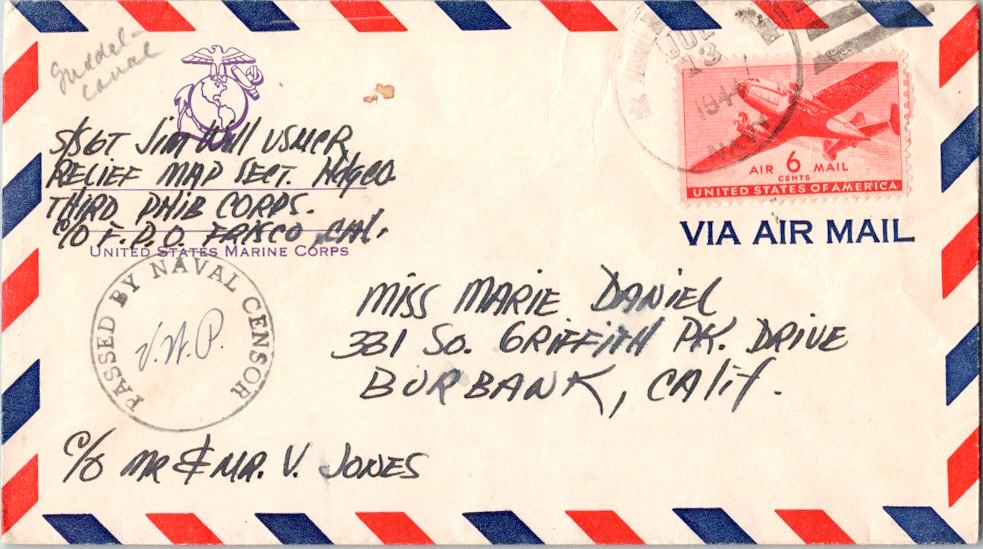 Guadal-
canal
S/SGT Jim Will USMCR
RELIEF MAP SECT. HdqCO.
THIRD PHIB CORPS.
C/O F.P.O. FRISCO, CAL.
UNITED STATES MARINE CORPS
PASSED BY NAVAL CENSOR
J.W.P.
13
1944
NAVY
AIR 6 MAIL
CENTS
UNITED STATES OF AMERICA
VIA AIR MAIL
MISS MARIE DANIEL
331 SO. GRIFFITH PK. DRIVE
BURBANK, Calif.
C/O MR & MR. V. JONES